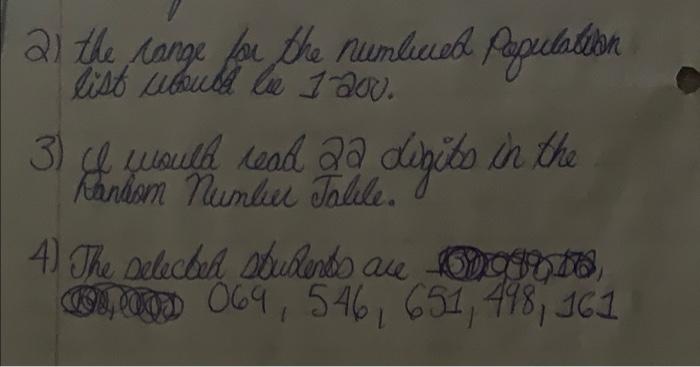 2) the range for the numbered Population
list would be 1-200.
3) I would read 22 digits in the
Random Number Table.
4) The selected students are
069, 546, 651, 498, 161